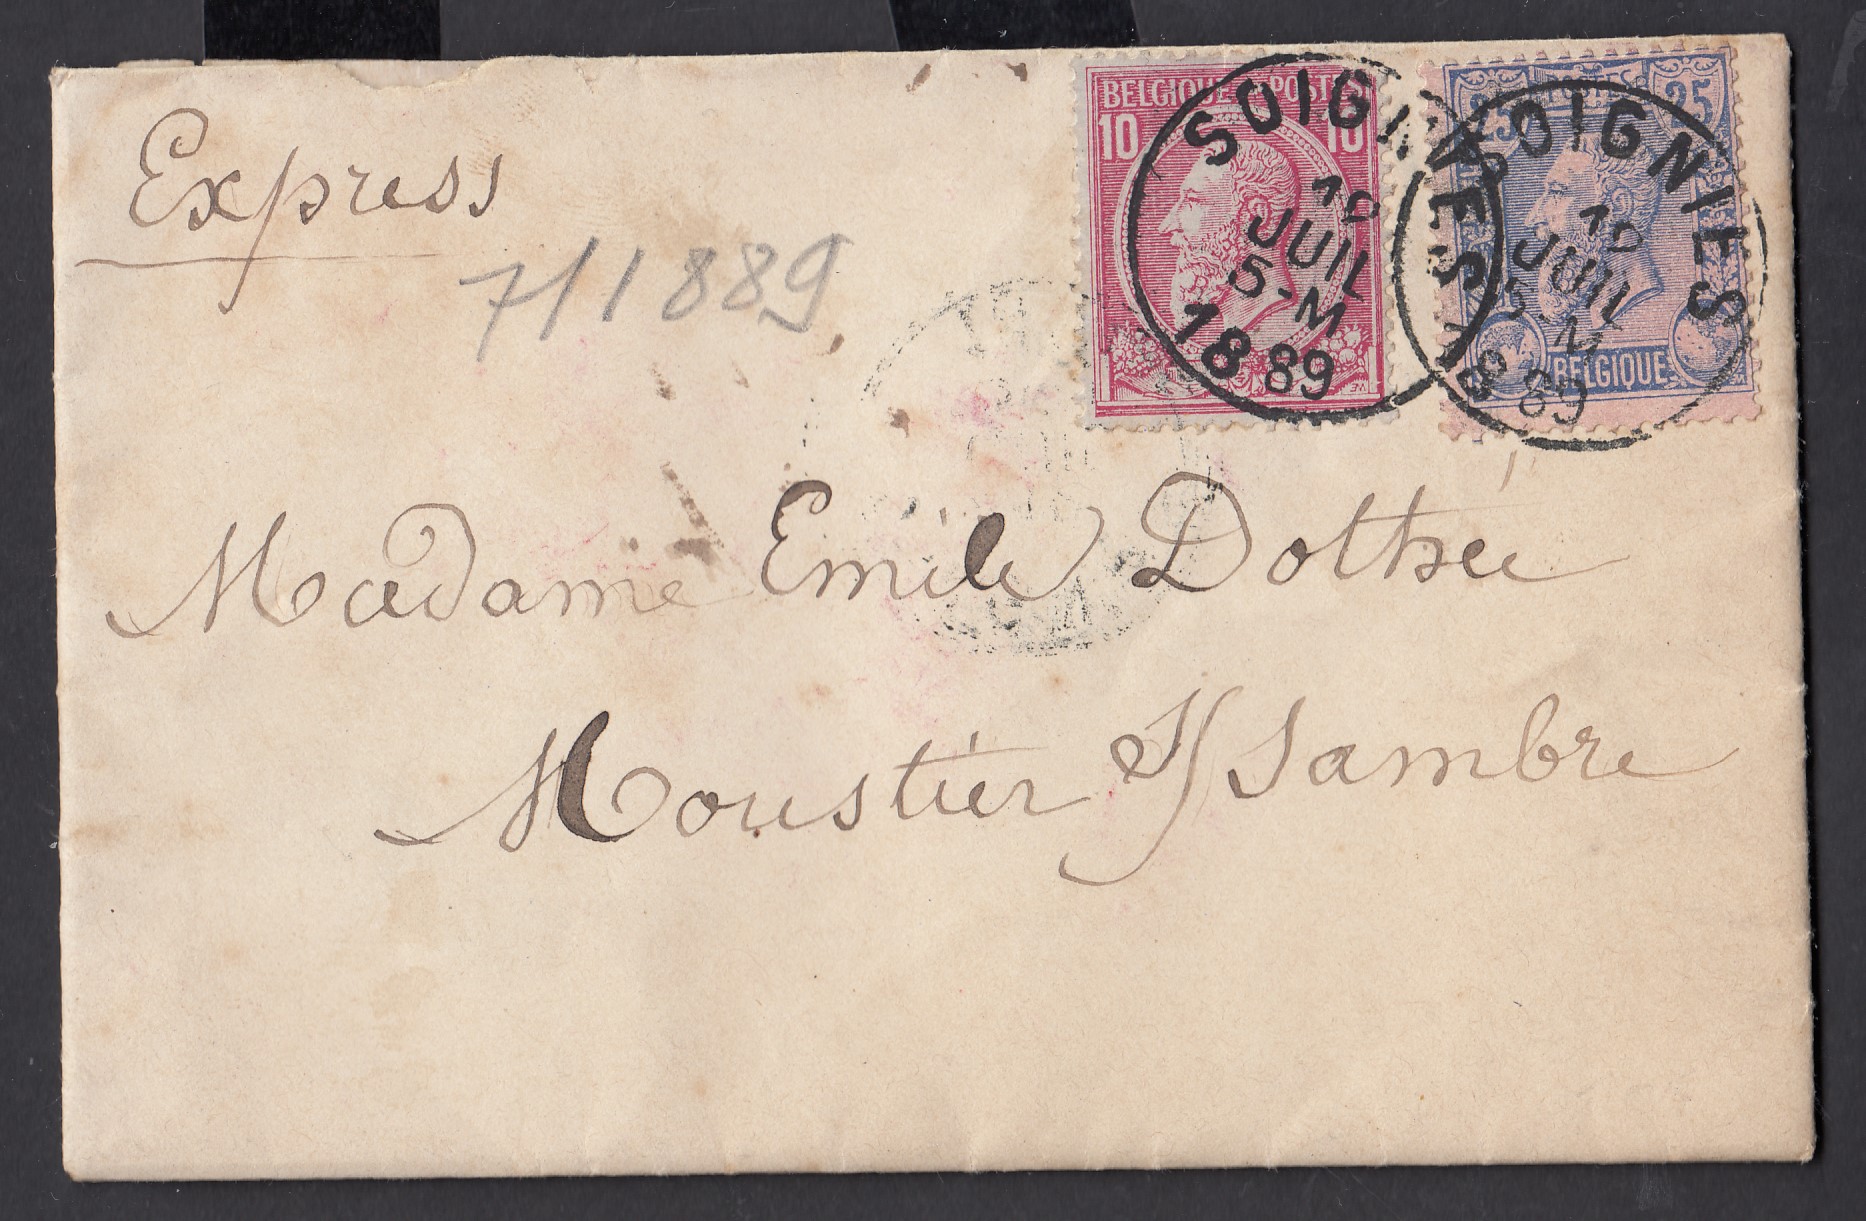 Express
7/1889
BELGIQUE POSTES
10 10
SOIGNIES
10
JUIL
5-M
1889
25 POSTES 25
BELGIQUE
SOIGNIES
10
JUIL
5-M
1889
Madame Emile Dothée
Moustier s/Sambre